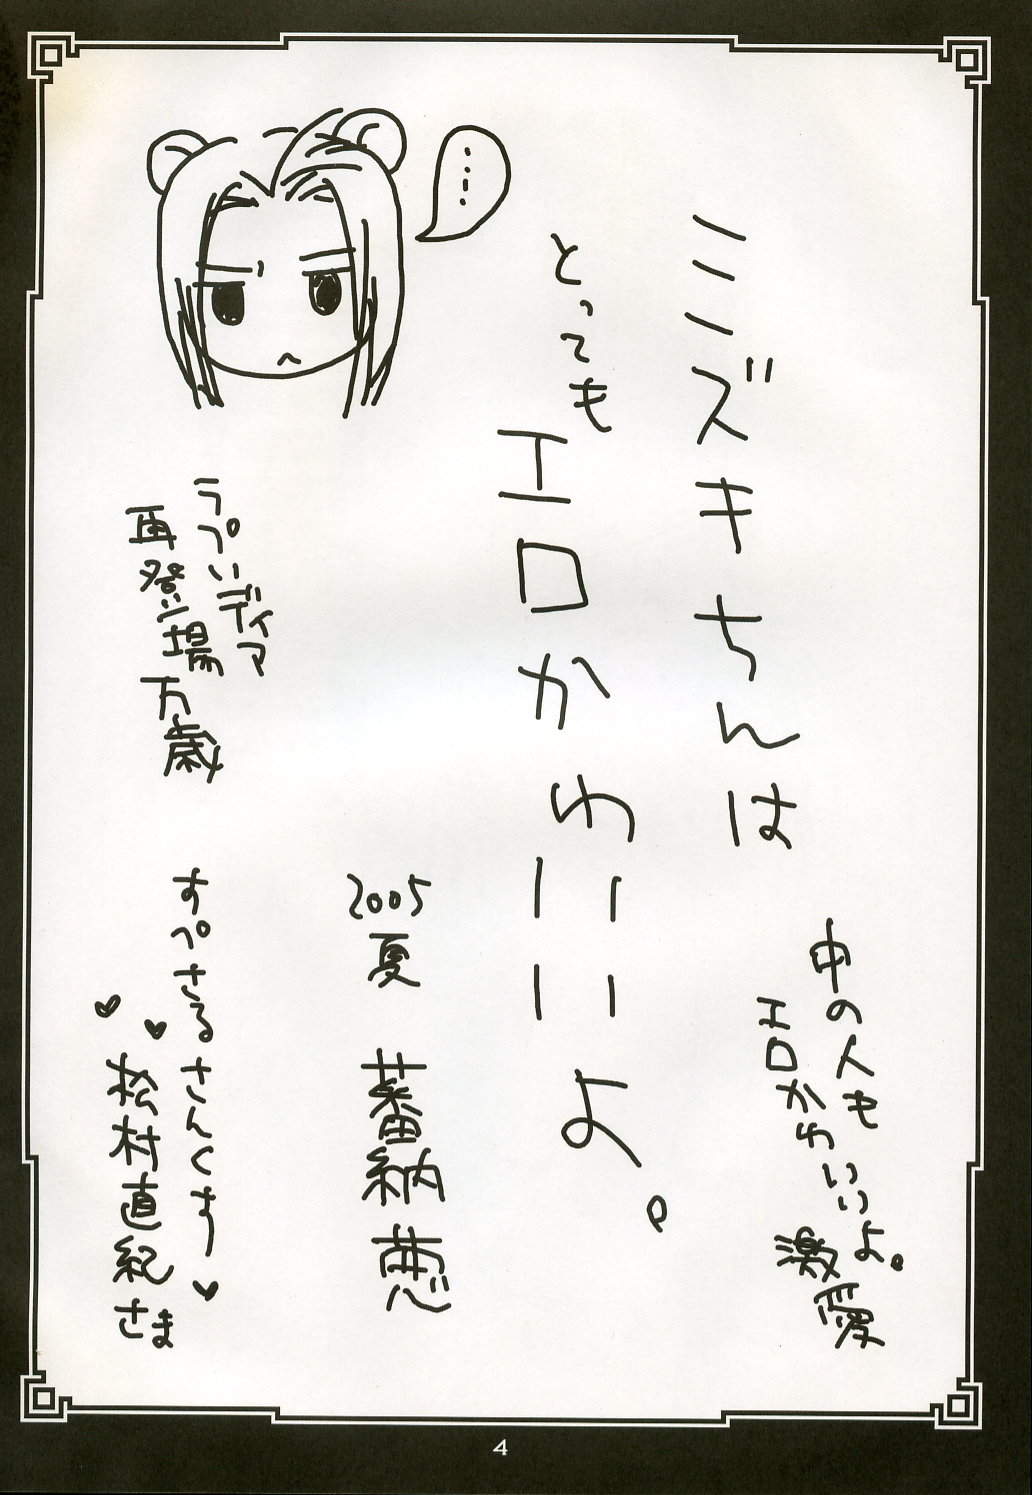 ミズキちんは
とってもエロかわいいよ。
中の人も
エロかわいいよ。
激愛
…
ラプンディア
再登場
万歳
2005
夏
蕃納葱
すぺさるさんくす♥
松村直紀さま
4